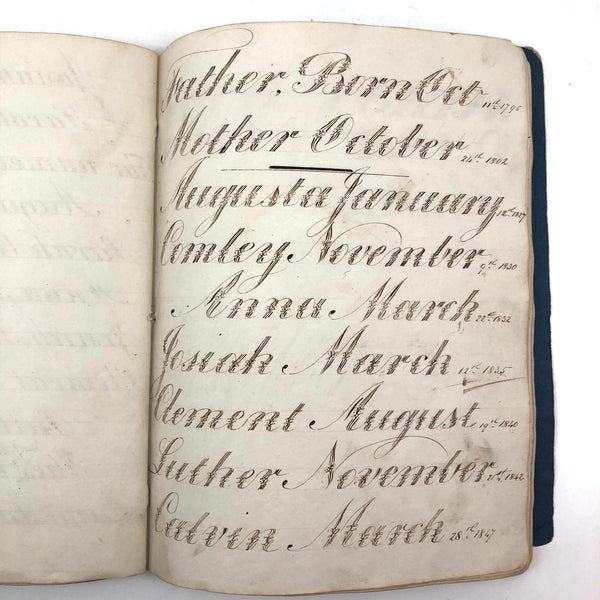 Father, Born Oct 11th 1796
Mother October 24th 1802
Augusta January 12th 1827
Comley November 9th 1830
Anna March 22nd 1832
Josiah March 12th 1835
Clement August 19th 1840
Luther November 21st 1842
Calvin March 28th 1847